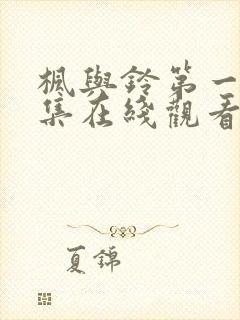 楓與鈴第一
集在綫觀看
夏錦